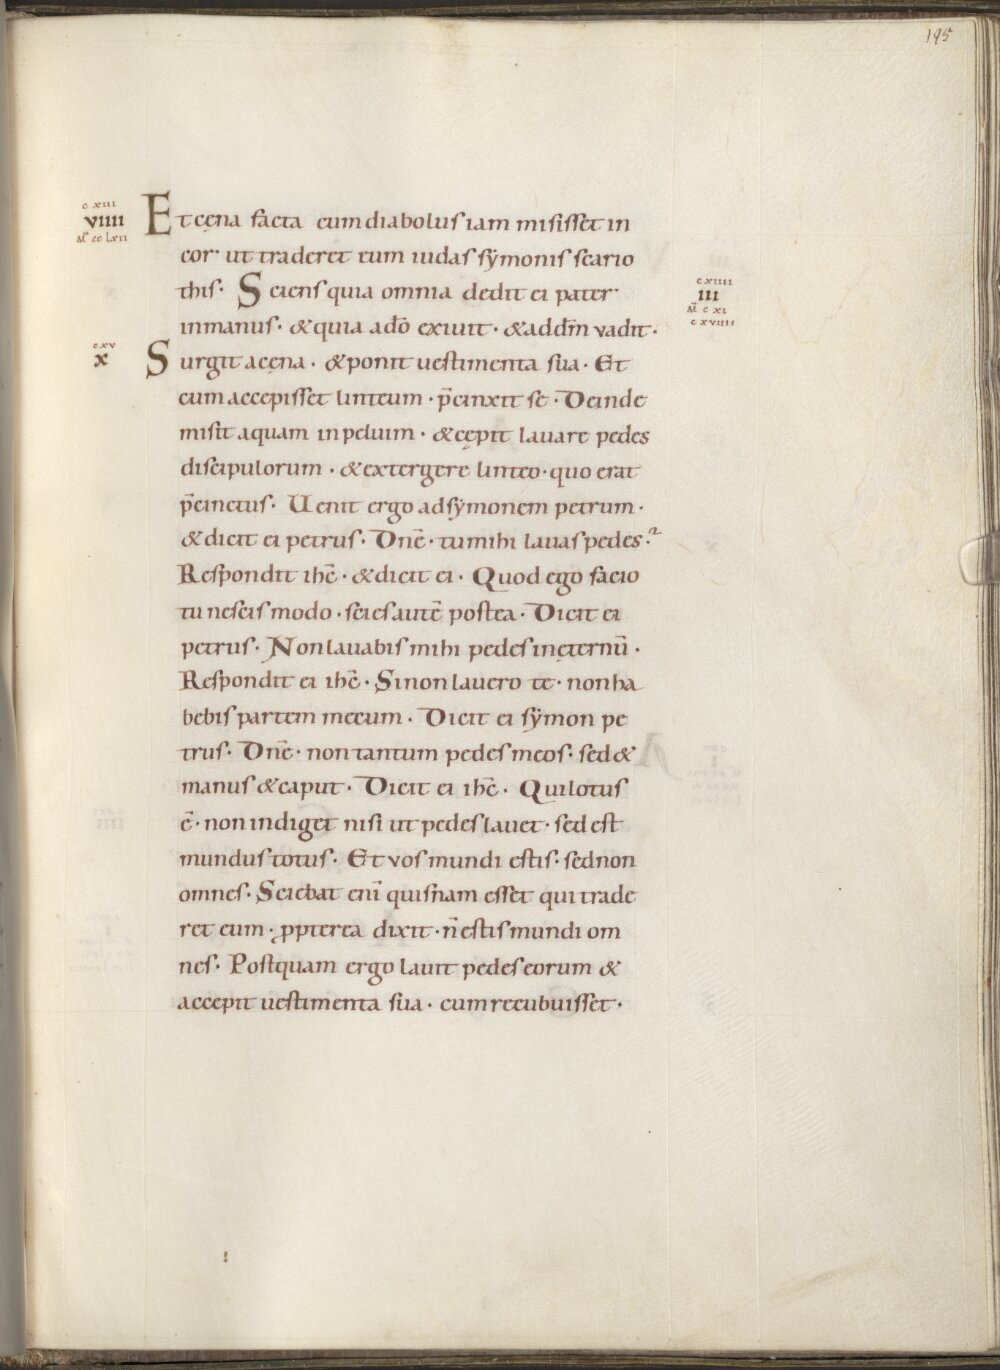 195
c xiii
viiii
Mͬ cc lxii
Et cęna facta cum diabolus iam misisset in
cor ut traderet eum iudas sẏmonis scario
this· Sciens quia omnia dedit ei pater
c xiiii
iii
M̄ c xi
c xviiii
in manus· & quia a dō exiuit· & ad dm̄ vadit·
c xv
x
Surgit a cęna· & ponit uestimenta sua· Et
cum accepisset linteum· p̄cinxit se· Deinde
misit aquam in peluim· & cępit lavare pedes
discipulorum· & extergere linteo· quo erat
p̄cinctus· Uenit ergo ad sẏmonem petrum·
& dicit ei petrus· Dnē· tu mihi lauas pedes·
Respondit ihc̄· & dicit ei· Quod ego facio
tu nescis modo· scies autē postea· Dicit ei
petrus· Non lauabis mihi pedes in ęternū·
Respondit ei ihc̄· Si non lavero te· non ha
bebis partem mecum· Dicit ei sẏmon pe
trus· Dnē· non tantum pedes meos· sed &
manus & caput· Dicit ei ihc̄· Qui lotus
ē· non indiget nisi ut pedes lauet· sed est
mundus totus· Et vos mundi estis· sed non
omnes· Sciebat eni̅ quisnam esset qui trade
ret eum· ꝓpterea dixit· n̄ estis mundi om
nes· Postquam ergo lauit pedes eorum &
accepit uestimenta sua· cum recubuisset·